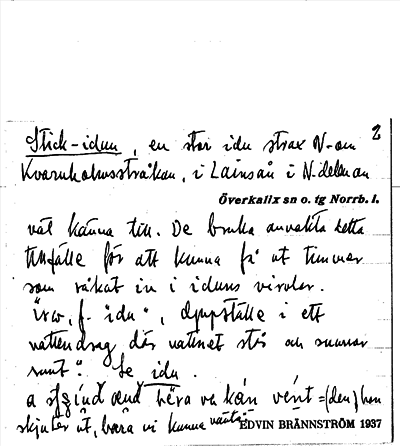 2
Stick-idun, en stor idu strax N-om
Kvarnholmsstråkan, i Lainsån i N. delen an
Överkalix sn o. tg Norrb. l.
väl känna till. De bruka använda detta
tillfälle för att kunna få ut timmer
som råkat in i iduns virvlar.
f. idu", djupställe i ett
vattendrag där vattnet står och snurrar
runt". Se idu.
a va =(den) han
skjuter ut, bara vi kunna vänta
EDVIN BRÄNNSTRÖM 1937